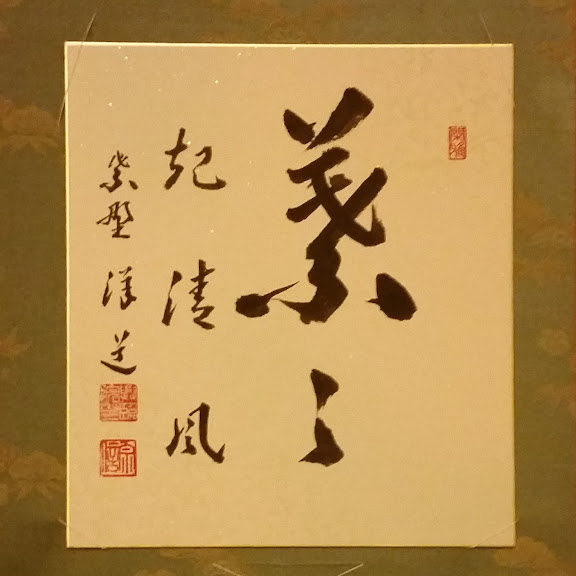 葉々
起清風
紫野 洋道